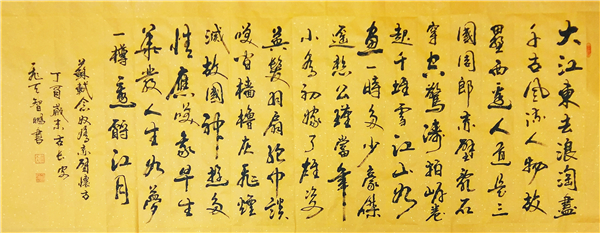 大江東去浪淘盡
千古風流人物故
壘西邊人道是三
國周郎赤壁亂石
穿空驚濤拍岸卷
起千堆雪江山如
畫一時多少豪傑
遙想公瑾當年
小喬初嫁了雄姿
英發羽扇綸巾談
笑間檣櫓灰飛煙
滅故國神遊多
情應笑我早生
華發人生如夢
一樽還酹江月
蘇軾念奴嬌赤壁懷古
丁酉歲末古長安
智書